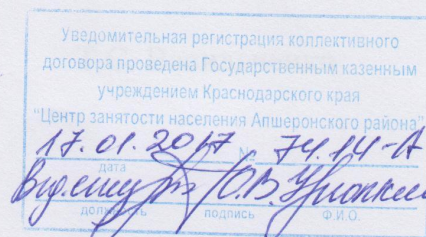 Уведомительная регистрация коллективного
договора проведена Государственным казенным
учреждением Краснодарского края
"Центр занятости населения Апшеронского района"
17.01.2017 № 74.14-А
дата
Вед. инспектор О.В.
должность подпись Ф.И.О.